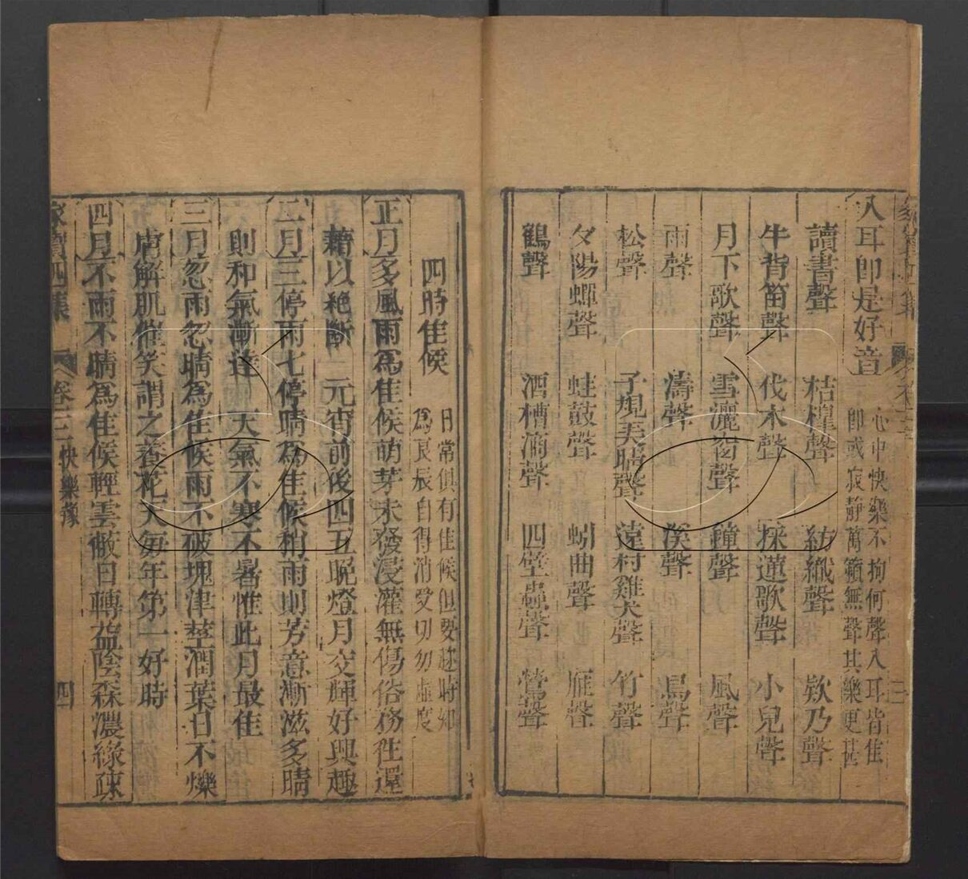 入耳即是好音
心中快樂不拘何聲入耳皆佳
即或寂靜萬籟無聲其樂更甚
讀書聲 桔槔聲 紡織聲 欸乃聲
牛背笛聲 伐木聲 採蓮歌聲 小兒聲
月下歌聲 雪灑窗聲 鐘聲 風聲
雨聲 濤聲 溪聲 鳥聲
松聲 子規美睡聲 遠村雞犬聲 竹聲
夕陽蟬聲 蛙鼓聲 蚓曲聲 雁聲
鶴聲 酒槽滴聲 四壁蟲聲 鶯聲
四時佳候
日常俱有佳候但要趁時卽
為良辰自得消受切勿虛度
正月多風雨為佳候萌芽未發浸灌無傷俗務徃還
藉以絶斷 元宵前後四五晩燈月交輝好興趣
二月三停雨七停晴為佳候稍雨則芳意漸滋多晴
則和氣漸達 天氣不寒不暑惟此月最佳
三月忽雨忽晴為佳候雨不破塊津莖潤葉日不爍
膚解肌催笑謂之養花天每年第一好時
四月不雨不晴為佳候輕雲蔽日轉益陰森濃綠疎
家寶四集 卷三 快樂 四